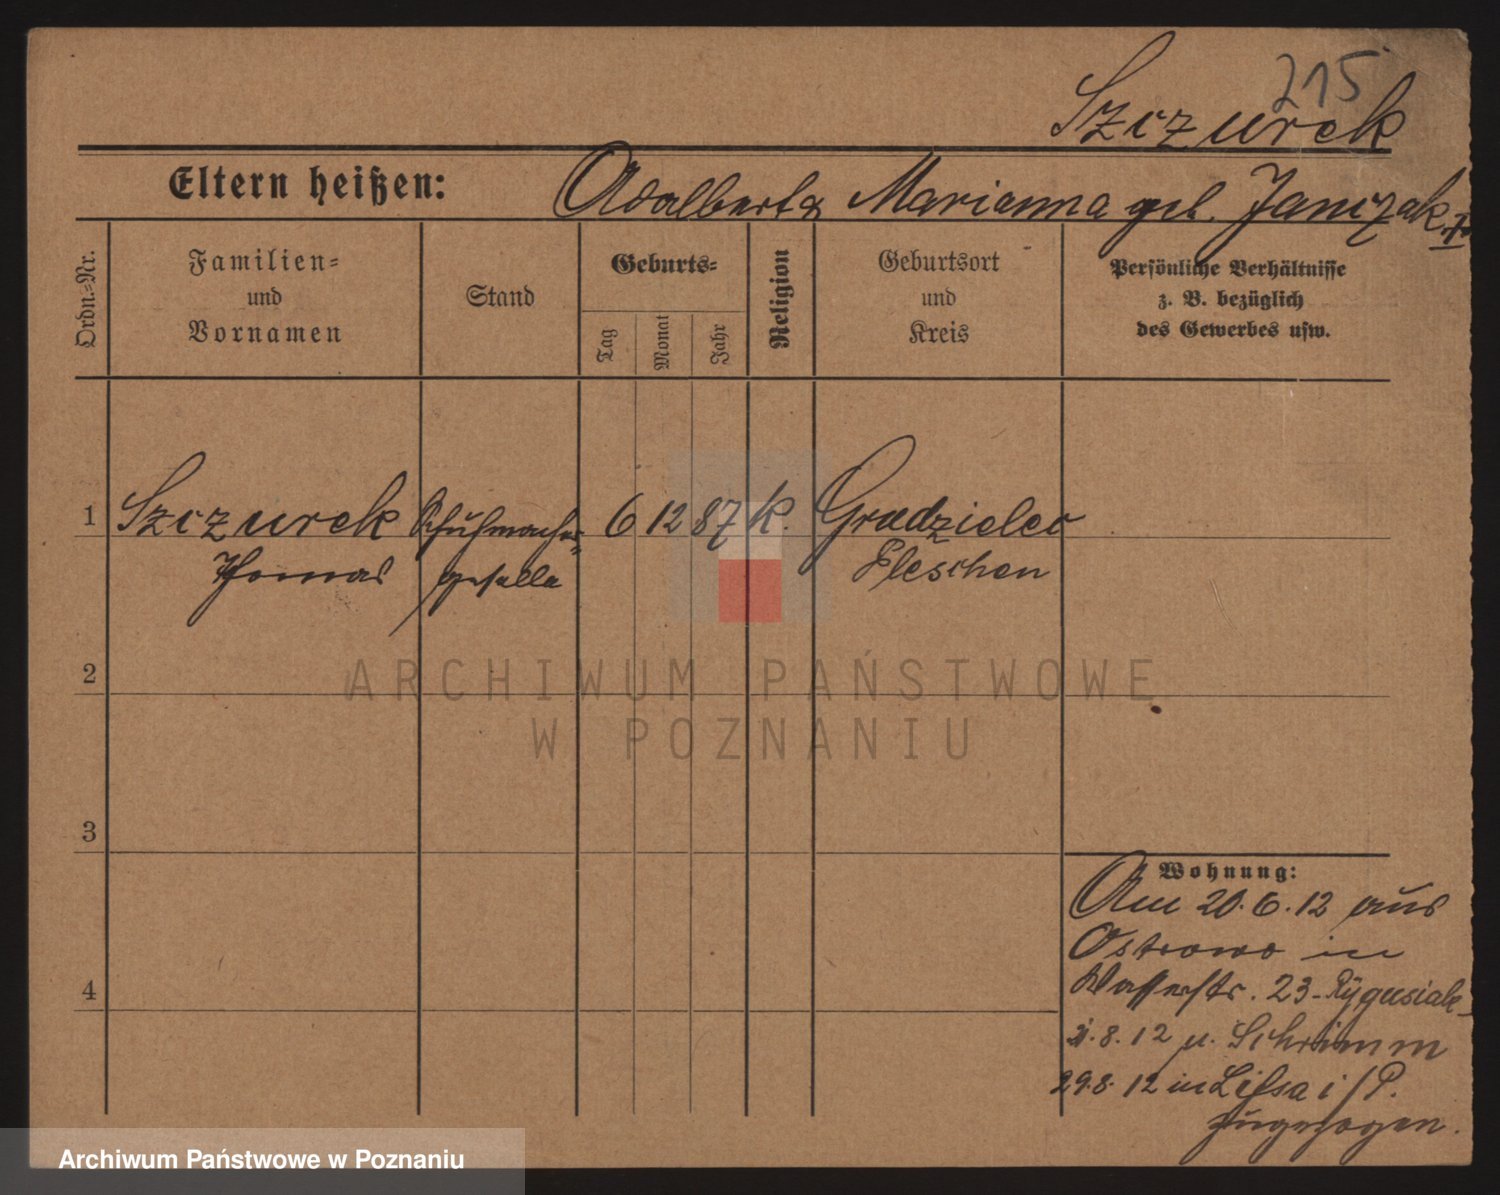 215
Szczurek
Eltern heißen: Adalbert & Marianna geb. Janczak
Ordn.=Nr.
Familien=
und
Vornamen
Stand
Geburts=
Tag
Monat
Jahr
Religion
Geburtsort
und
Kreis
Persönliche Verhältnisse
z. B. bezüglich
des Gewerbes usw.
1 Szczurek Schuhmacher= 6 12 87 k. Gradzielec
Thomas geselle Pleschen
2
3
4
Wohnung:
Am 20.6.12 aus
Ostrowo in
Wasserstr. 23 - Rÿgusiak
8.12 n. Schrimm
29.8.12 in Lissa i/P.
zugezogen.
ARCHIWUM PAŃSTWOWE
W POZNANIU
Archiwum Państwowe w Poznaniu